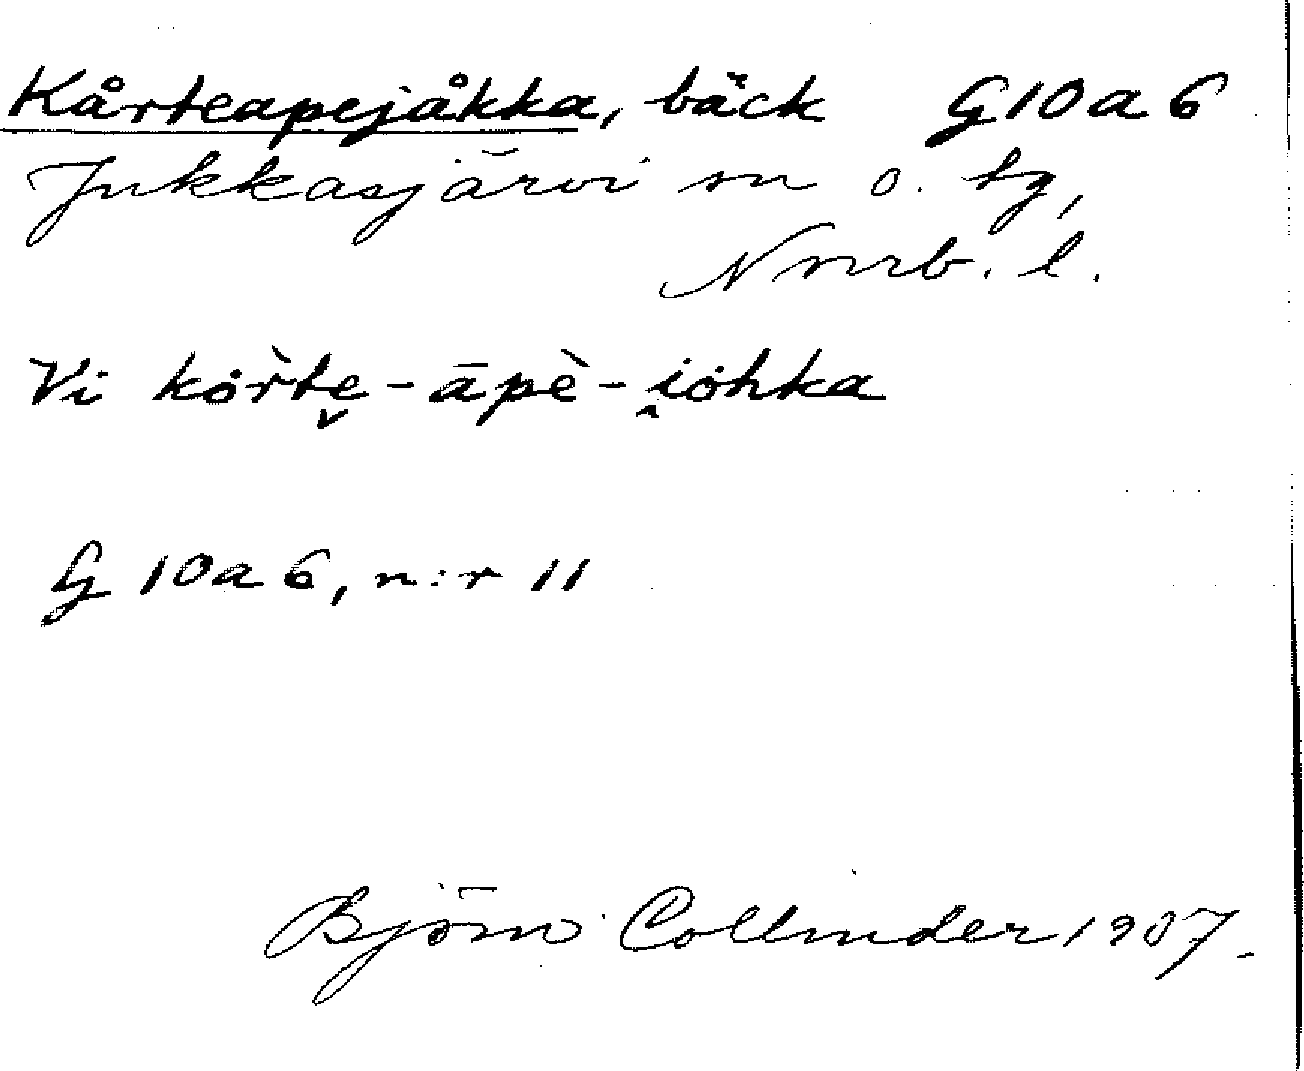 Kårteapejåkka, bäck G10a6
Jukkasjärvi sn o. tg,
Nmrb. l.
Vi kȯř̀te̬ - āpè - i̭ȯhka
G 10a6, n:r 11
Björn Collinder 1907.